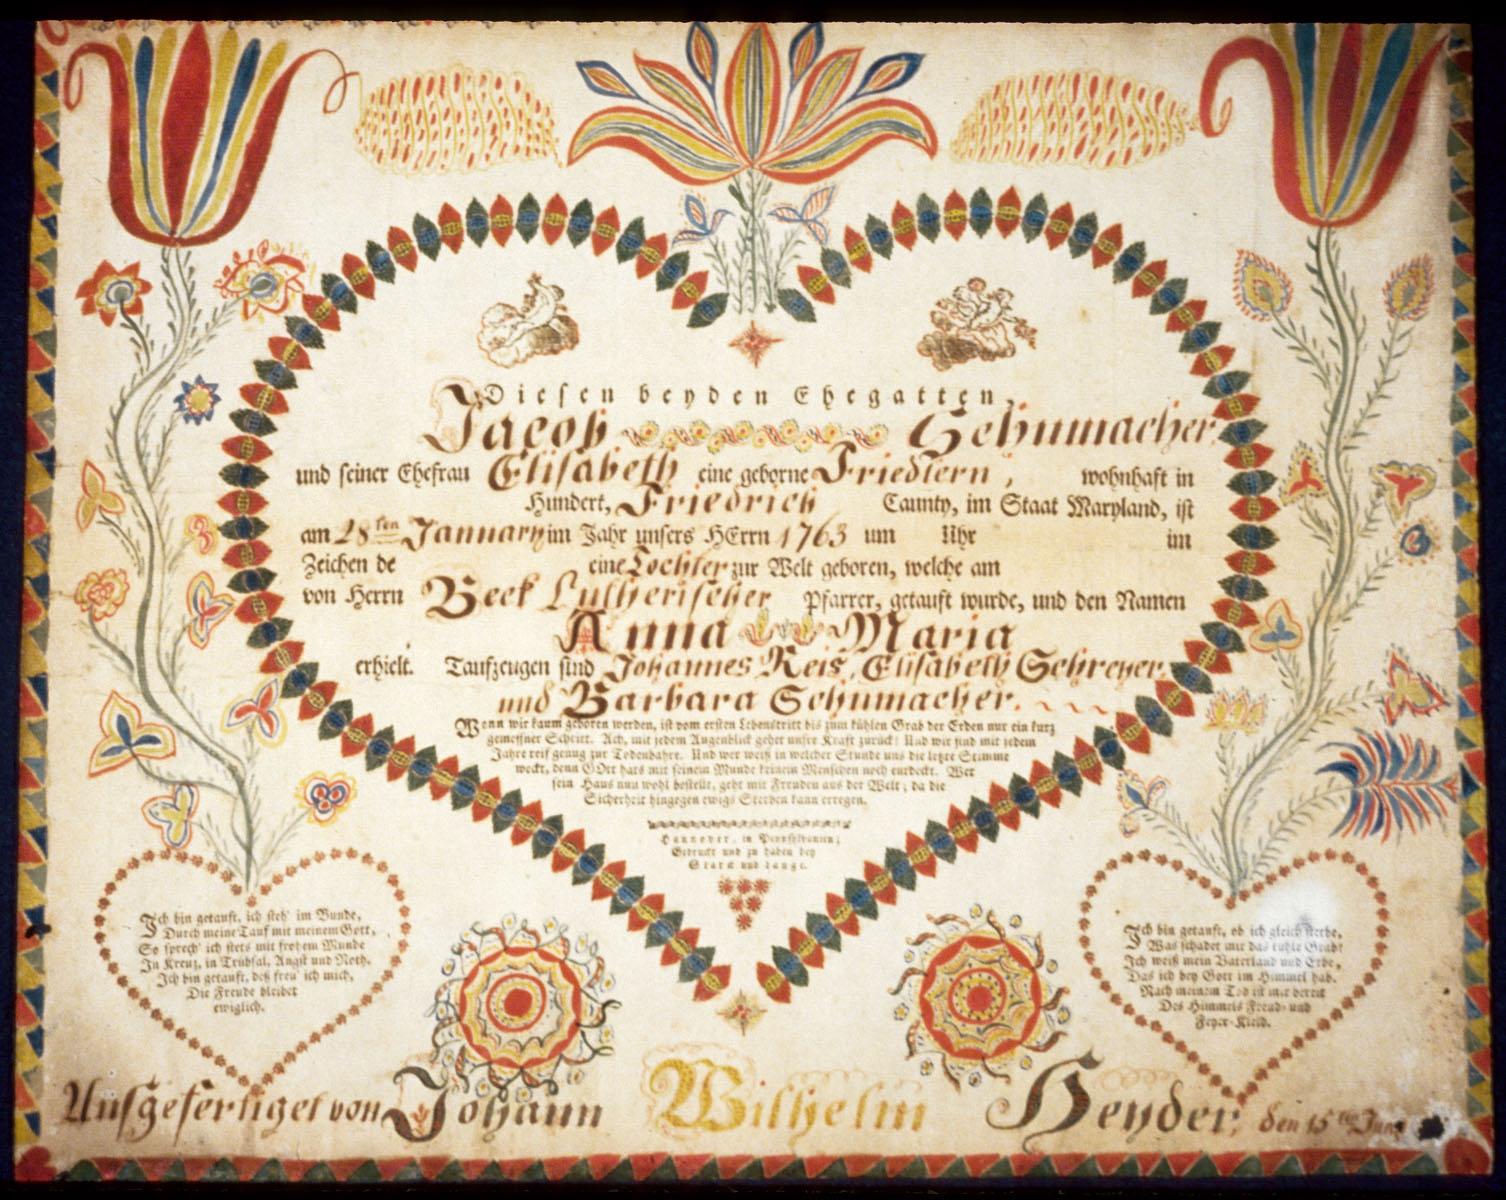 Diesen beyden Ehegatten,
Jacob Schumacher,
und seiner Ehefrau Elisabeth eine geborne Friedlern, wohnhaft in
Hundert, Friedrich Caunty, im Staat Maryland, ist
am 28ten January im Jahr unsers HErrn 1763 um Uhr im
Zeichen de eine Tochter zur Welt geboren, welche am
von Herrn Beck Lutherischer Pfarrer, getauft wurde, und den Namen
Anna Maria
erhielt. Taufzeugen sind Johannes Reis, Elisabeth Schreyer,
und Barbara Schumacher.
Wenn wir kaum geboren werden, ist vom ersten Lebenstritt bis zum kühlen Grab der Erden nur ein kurz
gemessner Schritt. Ach, mit jedem Augenblick gehet unsre Kraft zurück! Und wir sind mit jedem
Jahre reif genug zur Todenbahre. Und wer weiß in welcher Stunde uns die letzte Stimme
weckt, denn GOtt hats mit seinem Munde keinem Menschen noch entdeckt. Wer
sein Haus nun wohl bestellt, geht mit Freuden aus der Welt; da die
Sicherheit hingegen ewigs Sterben kann erregen.
Hannover, in Pennsylvanien;
Gedruckt und zu haben bey
Starck und Lange.
Ich bin getauft, ich steh' im Bunde,
Durch meine Tauf mit meinem Gott,
So sprech' ich stets mit frohem Munde
In Kreuz, in Trübsal, Angst und Noth.
Ich bin getauft, deß freu' ich mich,
Die Freude bleibet
ewiglich.
Ich bin getauft, ob ich gleich sterbe,
Was schadet mir das kühle Grab?
Ich weiß mein Vaterland und Erbe,
Das ich bey Gott im Himmel hab.
Nach meinem Tod ist mir bereit
Des Himmels Freud- und
Feyer-Kleid.
Ausgefertiget von Johann Wilhelm Heyder, den 15ten